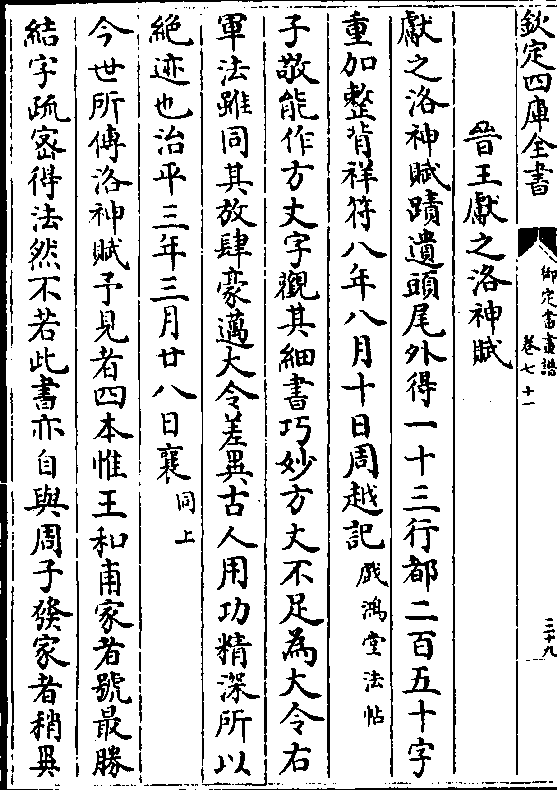 欽定四庫全書
御定書畫譜
卷七十一
三十九
晉王獻之洛神賦
獻之洛神賦蹟遺頭尾外得一十三行都二百五十字
重加整背祥符八年八月十日周越記戲鴻堂法帖
子敬能作方丈字觀其細書巧妙方丈不足為大令右
軍法雖同其放肆豪邁大令差異古人用功精深所以
絶迹也治平三年三月廿八日襄同上
今世所傳洛神賦予見者四本惟王和甫家者號最勝
結字疏宻得法然不若此書亦自與周子發家者稍異